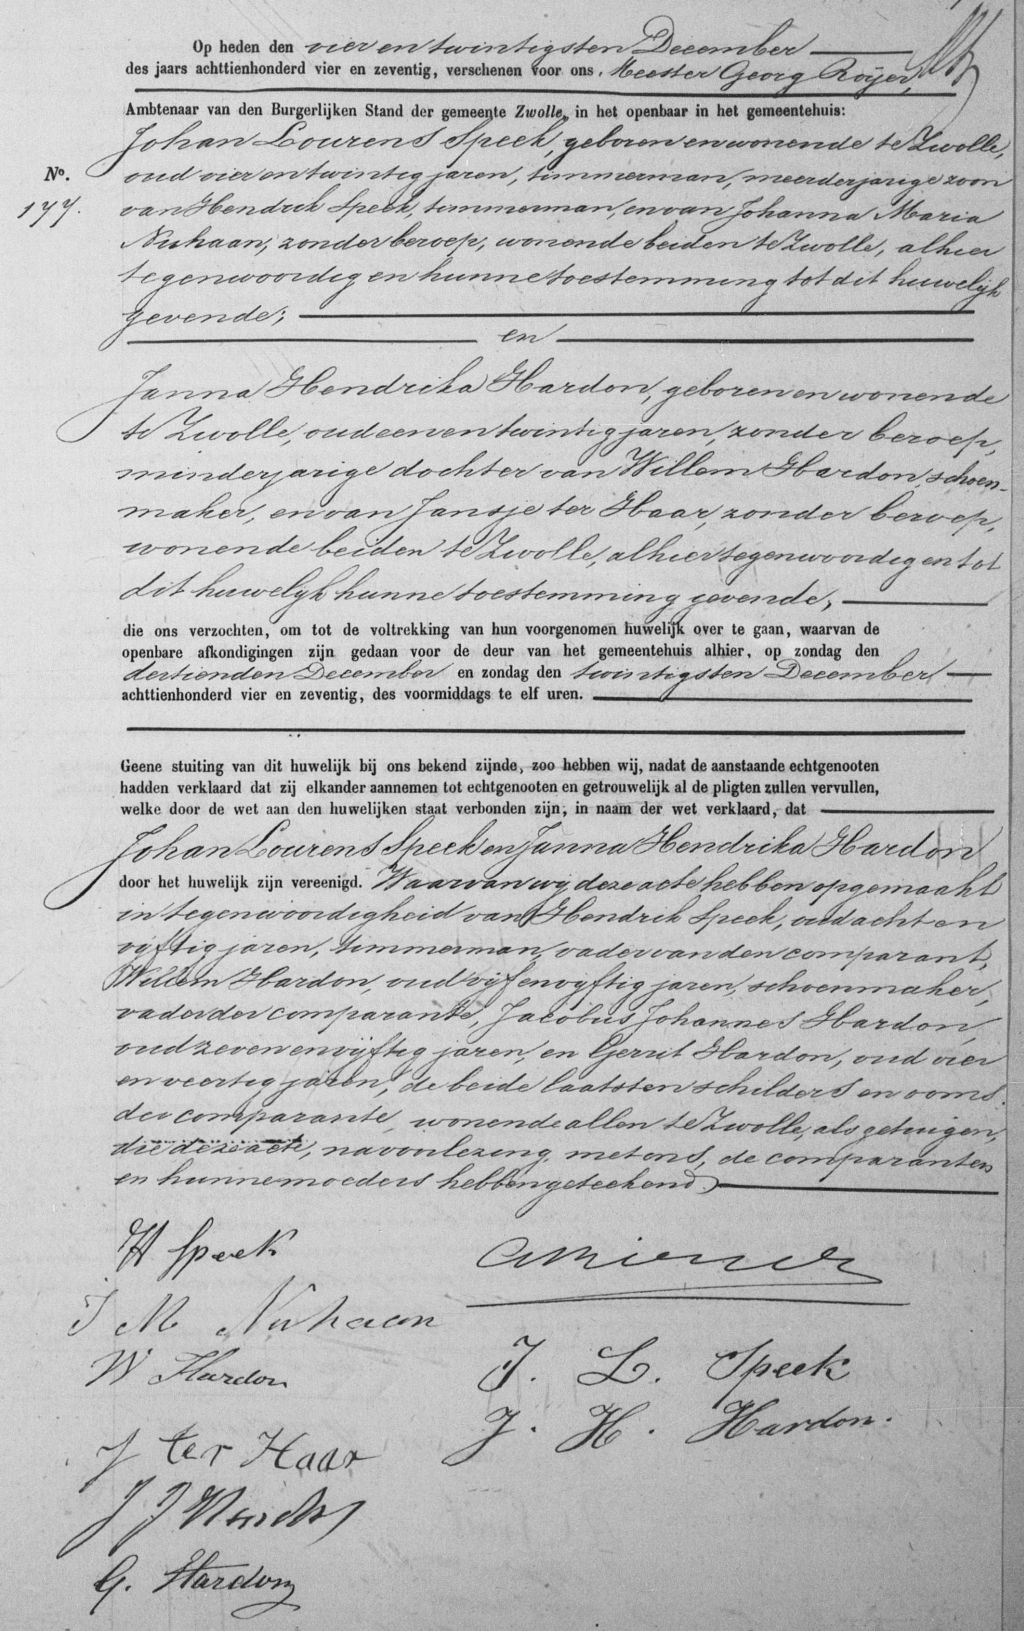 Op heden den vier en twintigsten December
des jaars achttienhonderd vier en zeventig, verschenen voor ons, Meester Georg Roijer,
Ambtenaar van den Burgerlijken Stand der gemeente Zwolle, in het openbaar in het gemeentehuis:
Johan Lourens Speek, geboren en wonende te Zwolle,
No. oud vier en twintig jaren, timmerman, meerderjarige zoon
177. van Hendrik Speek, timmerman, en van Johanna Maria
Niehaan, zonder beroep, wonende beiden te Zwolle, alhier
tegenwoordig en hunne toestemming tot dit huwelijk
gevende;
en
Janna Hendrika Hardon, geboren en wonende
te Zwolle, oud een en twintig jaren, zonder beroep,
minderjarige dochter van Willem Hardon, schoen-
maker, en van Jansje ter Haar, zonder beroep,
wonende beiden te Zwolle, alhier tegenwoordig en tot
dit huwelijk hunne toestemming gevende,
die ons verzochten, om tot de voltrekking van hun voorgenomen huwelijk over te gaan, waarvan de
openbare afkondigingen zijn gedaan voor de deur van het gemeentehuis alhier, op zondag den
dertienden December en zondag den twintigsten December
achttienhonderd vier en zeventig, des voormiddags te elf uren.
Geene stuiting van dit huwelijk bij ons bekend zijnde, zoo hebben wij, nadat de aanstaande echtgenooten
hadden verklaard dat zij elkander aannemen tot echtgenooten en getrouwelijk al de pligten zullen vervullen,
welke door de wet aan den huwelijken staat verbonden zijn, in naam der wet verklaard, dat
Johan Lourens Speek en Janna Hendrika Hardon
door het huwelijk zijn vereenigd. Waarvan wij deze acte hebben opgemaakt
in tegenwoordigheid van Hendrik Speek, oud acht en
vijftig jaren, timmerman, vader van den comparant,
Willem Hardon, oud vijf en vijftig jaren, schoenmaker,
vader der comparante, Jacobus Johannes Hardon,
oud zeven en vijftig jaren, en Gerrit Hardon, oud vier
en veertig jaren, de beide laatsten schilders en ooms
der comparante, wonende allen te Zwolle, als getuigen,
die deze acte, na voorlezing, met ons, de comparanten
en hunne moeders hebben geteekend.
H Speek
J M Niehaan
W Hardon
J. L. Speek
J. H. Hardon.
J ter Haar
G. Hardon